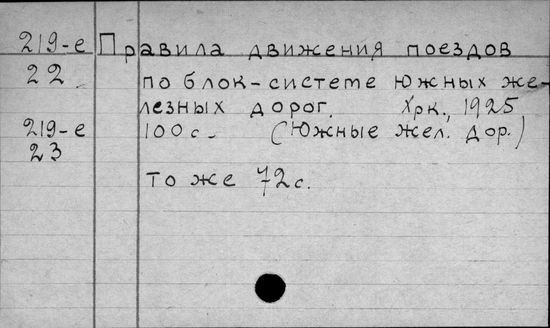 219-е Правила движения поездов
22 по блок-системе Южных же-
лезных дорог. Хрк., 1925
219-е 100с. (Южные жел. дор.)
23
то же 72с.